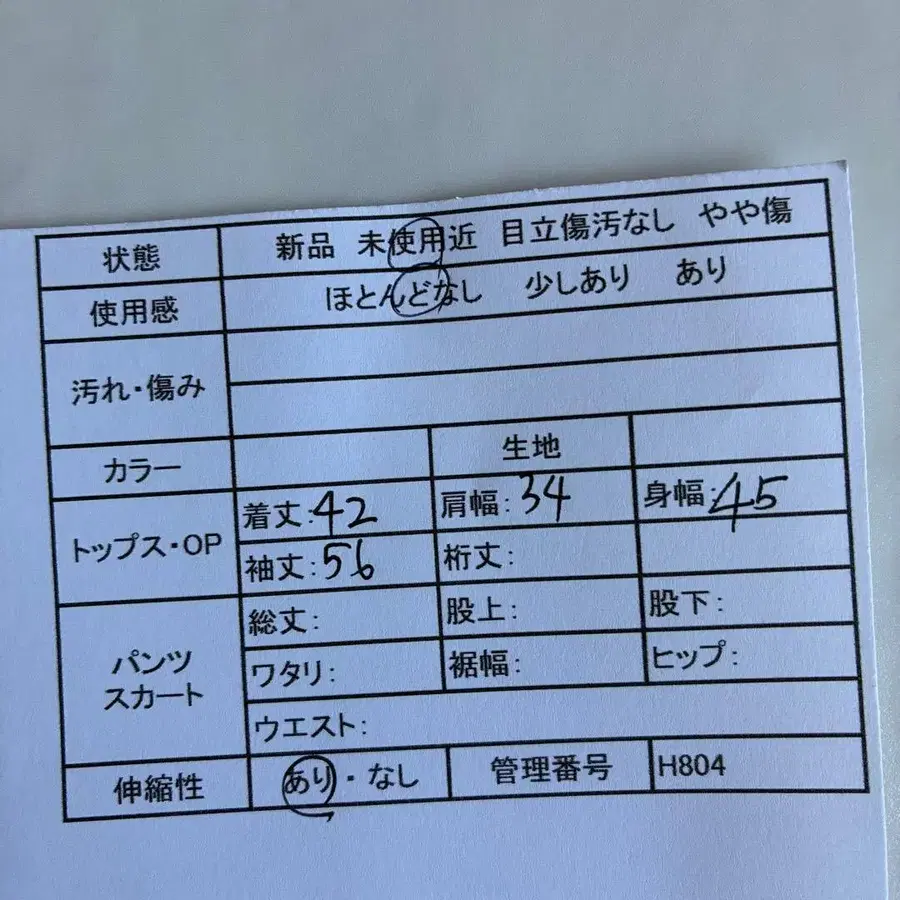 状態 新品 未使用近 目立傷汚なし やや傷
使用感 ほとんどなし 少しあり あり
汚れ・傷み
カラー 生地
トップス・OP 着丈:42 肩幅:34 身幅:45
袖丈:56 裄丈:
パンツ スカート 総丈: 股上: 股下:
ワタリ: 裾幅: ヒップ:
ウエスト:
伸縮性 あり・なし 管理番号 H804